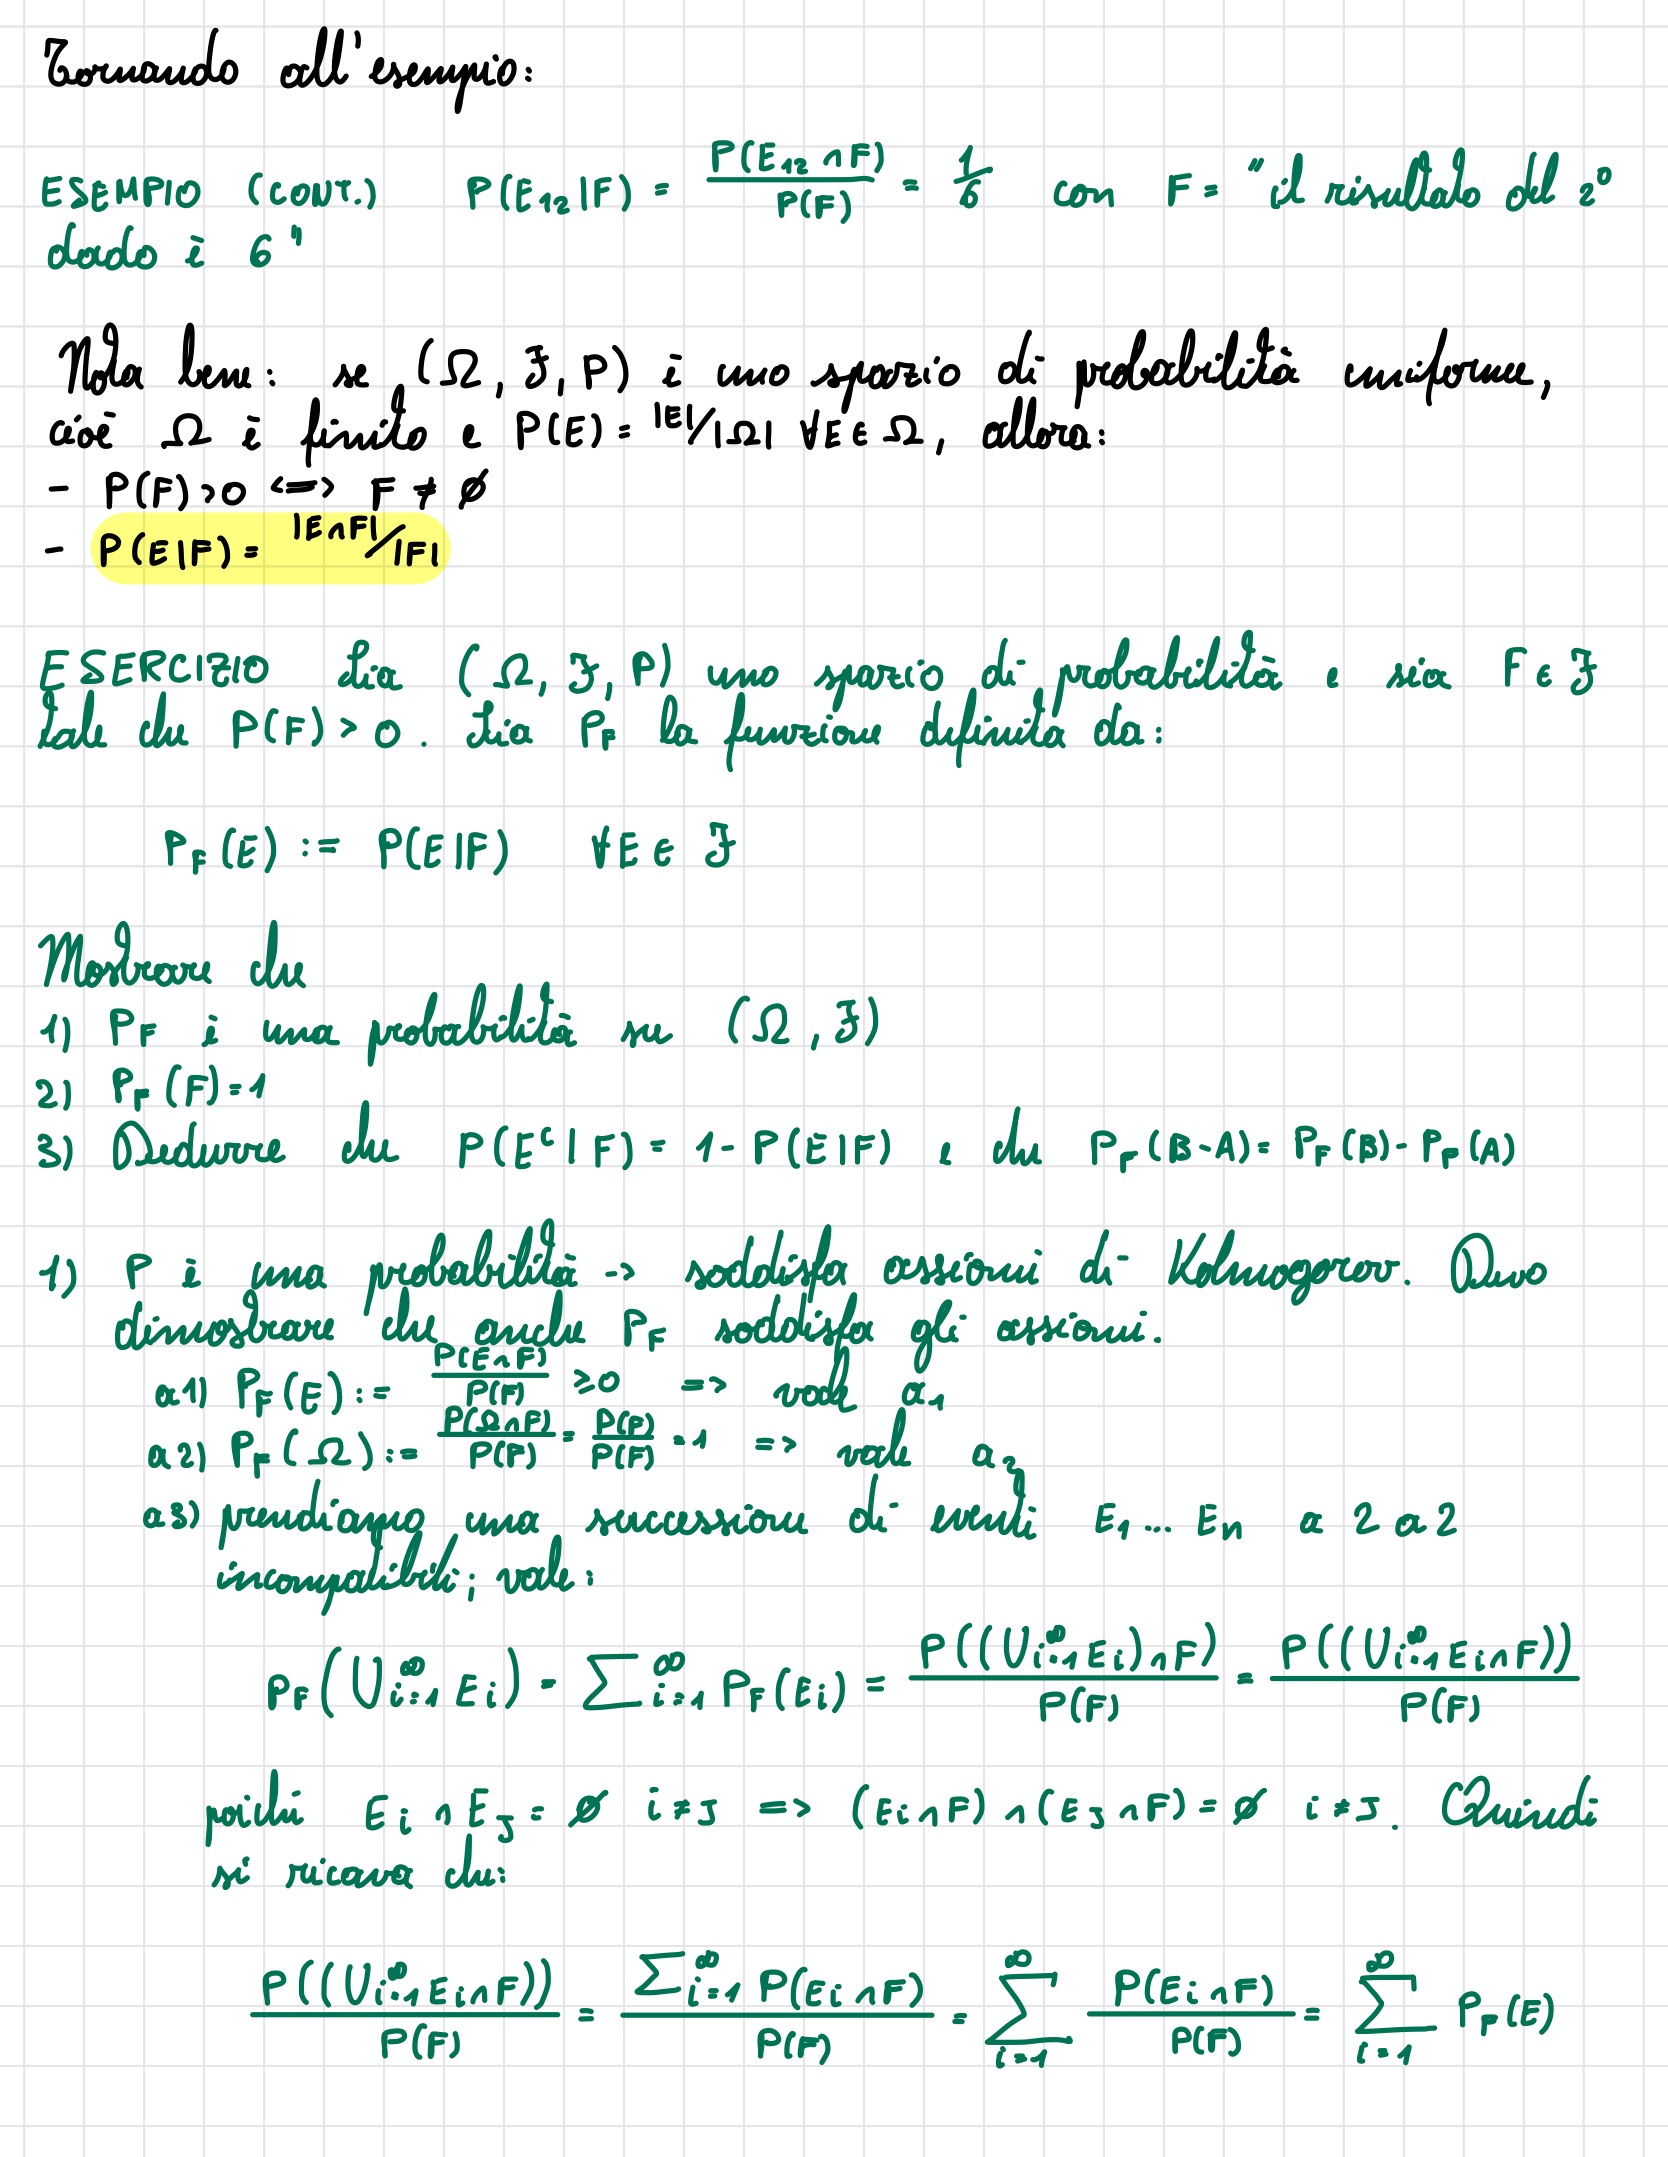 Tornando all'esempio:
ESEMPIO (CONT.) P(E₁₂|F) = P(E₁₂∩F)/P(F) = 1/6 con F = "il risultato del 2°
dado è 6"
Nota bene: se (Ω, F, P) è uno spazio di probabilità uniforme,
cioè Ω è finito e P(E) = |E|/|Ω| ∀E∈Ω, allora:
- P(F)>0 <=> F ≠ ∅
- P(E|F) = |E∩F|/|F|
ESERCIZIO Sia (Ω, F, P) uno spazio di probabilità e sia F ∈ F
tale che P(F) > 0. Sia P_F la funzione definita da:
P_F(E) := P(E|F) ∀E ∈ F
Mostrare che
1) P_F è una probabilità su (Ω, F)
2) P_F(F) = 1
3) Dedurre che P(Eᶜ|F) = 1 - P(E|F) e che P_F(B-A) = P_F(B) - P_F(A)
1) P è una probabilità -> soddisfa assiomi di Kolmogorov. Devo
dimostrare che anche P_F soddisfa gli assiomi.
a1) P_F(E) := P(E∩F)/P(F) ≥0 => vale a₁
a2) P_F(Ω) := P(Ω∩F)/P(F) = P(F)/P(F) = 1 => vale a₂
a3) prendiamo una successione di eventi E₁ ... Eₙ a 2 a 2
incompatibili; vale:
P_F(⋃_{i=1}^∞ E_i) = ∑_{i=1}^∞ P_F(E_i) = P((⋃_{i=1}^∞ E_i)∩F)/P(F) = P((⋃_{i=1}^∞ E_i∩F))/P(F)
poichè E_i ∩ E_J = ∅ i≠J => (E_i∩F)∩(E_J∩F) = ∅ i≠J. Quindi
si ricava che:
P((⋃_{i=1}^∞ E_i∩F))/P(F) = ∑_{i=1}^∞ P(E_i∩F)/P(F) = ∑_{i=1}^∞ P(E_i∩F)/P(F) = ∑_{i=1}^∞ P_F(E)